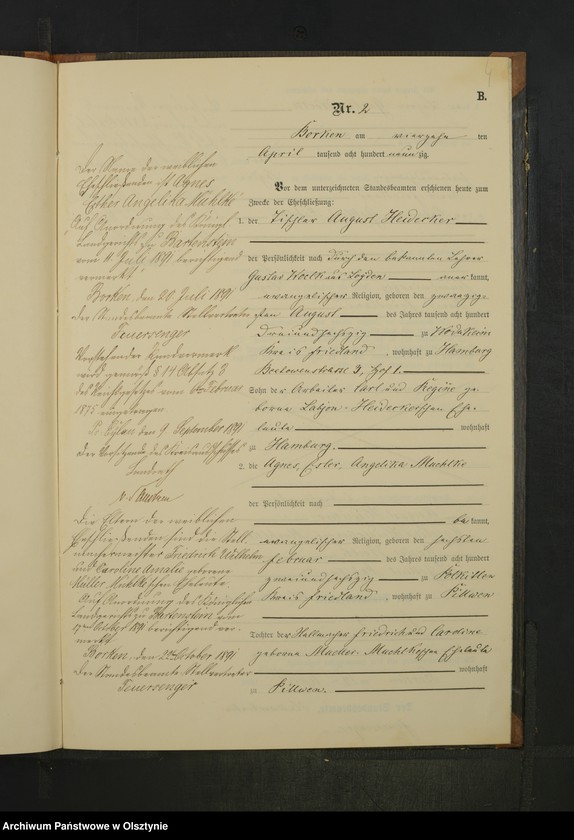 B.
Nr. 2
Borken am vierzehn ten
April tausend acht hundert neun zig.
Vor dem unterzeichneten Standesbeamten erschienen heute zum
Zwecke der Eheschließung:
1. der Tischler August Heidecker
der Persönlichkeit nach durch den bekannten Lehrer
Gustav aus aner kannt,
evangelischer Religion, geboren den zwanzig-
sten August des Jahres tausend acht hundert
dreiundsechszig zu
Kreis Friedland, wohnhaft zu Hamburg
3, Hof 1.
Sohn der Arbeiter Carl und Regine ge-
borne Labjon-Heideckerschen Ehe-
leute wohnhaft
zu Hamburg.
2. die Agnes, Ester, Angelika Machtke
der Persönlichkeit nach
be kannt,
evangelischer Religion, geboren den sechsten
Februar des Jahres tausend acht hundert
zweiundsechszig zu
Kreis Friedland, wohnhaft zu Pillwen
Tochter der Friedrich und Caroline
geborne Macher-Machtkeschen Eheleute
wohnhaft
zu Pillwen.
Der Name der weiblichen
Eheschließenden ist Agnes
Ester Angelika Mühlke
Auf Anordnung des Königl.
Landgerichts zu Bartenstein
vom 11. Juli 1891 berichtigend
vermerkt.
Borken, den 20. Juli 1891
Der Standesbeamte Stellvertreter
Feuersenger
Vorstehender Randvermerk
wird gemäß § 14 Absatz 3
des Reichsgesetzes vom 6. Februar
1875 eingetragen
Pr. Eylau den 9. September 1891
Der Vorsitzende des Kreisausschusses
Landrath
Die Eltern der weiblichen
Eheschließenden sind die Stell-
machermeister Friedrich Wilhelm
und Caroline Amalie geborene
Müller Mühlkeschen Eheleute.
Auf Anordnung des Königlichen
Landgerichts zu Bartenstein vom
October 1891 berichtigend ver-
merkt.
Borken, den 22. October 1891
Der Standesbeamte Stellvertreter
Feuersenger
Archiwum Państwowe w Olsztynie